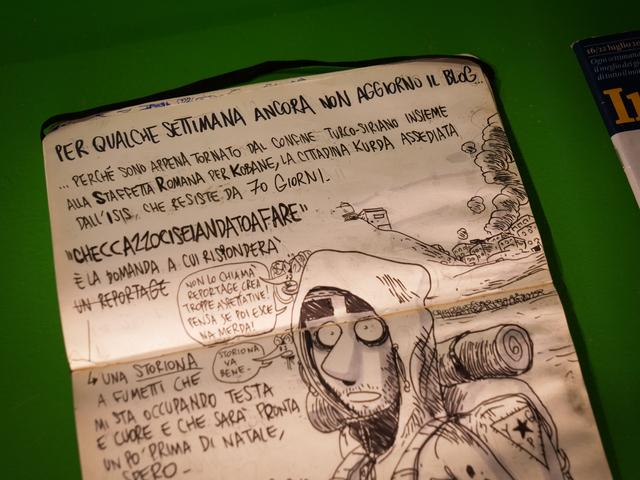 PER QUALCHE SETTIMANA ANCORA NON AGGIORNO IL BLOG...
... PERCHÉ SONO APPENA TORNATO DAL CONFINE TURCO-SIRIANO INSIEME
ALLA STAFFETTA ROMANA PER KOBANE, LA CITTADINA KURDA ASSEDIATA
DALL'ISIS, CHE RESISTE DA 70 GIORNI.
"CHECCAZZOCISEIANDATOAFARE"
È LA DOMANDA A CUI RISPONDERÀ
UN REPORTAGE
NON LO CHIAMA'
REPORTAGE CREA
TROPPE ASPETTATIVE!
PENSA SE POI ESCE
NA MERDA!
STORIONA
VA
BENE-
UNA STORIONA
A FUMETTI CHE
MI STA OCCUPANDO TESTA
E CUORE E CHE SARÀ PRONTA
UN PO' PRIMA DI NATALE,
SPERO-
16/22 luglio
Ogni settimana
il meglio dei
di tutto il
In